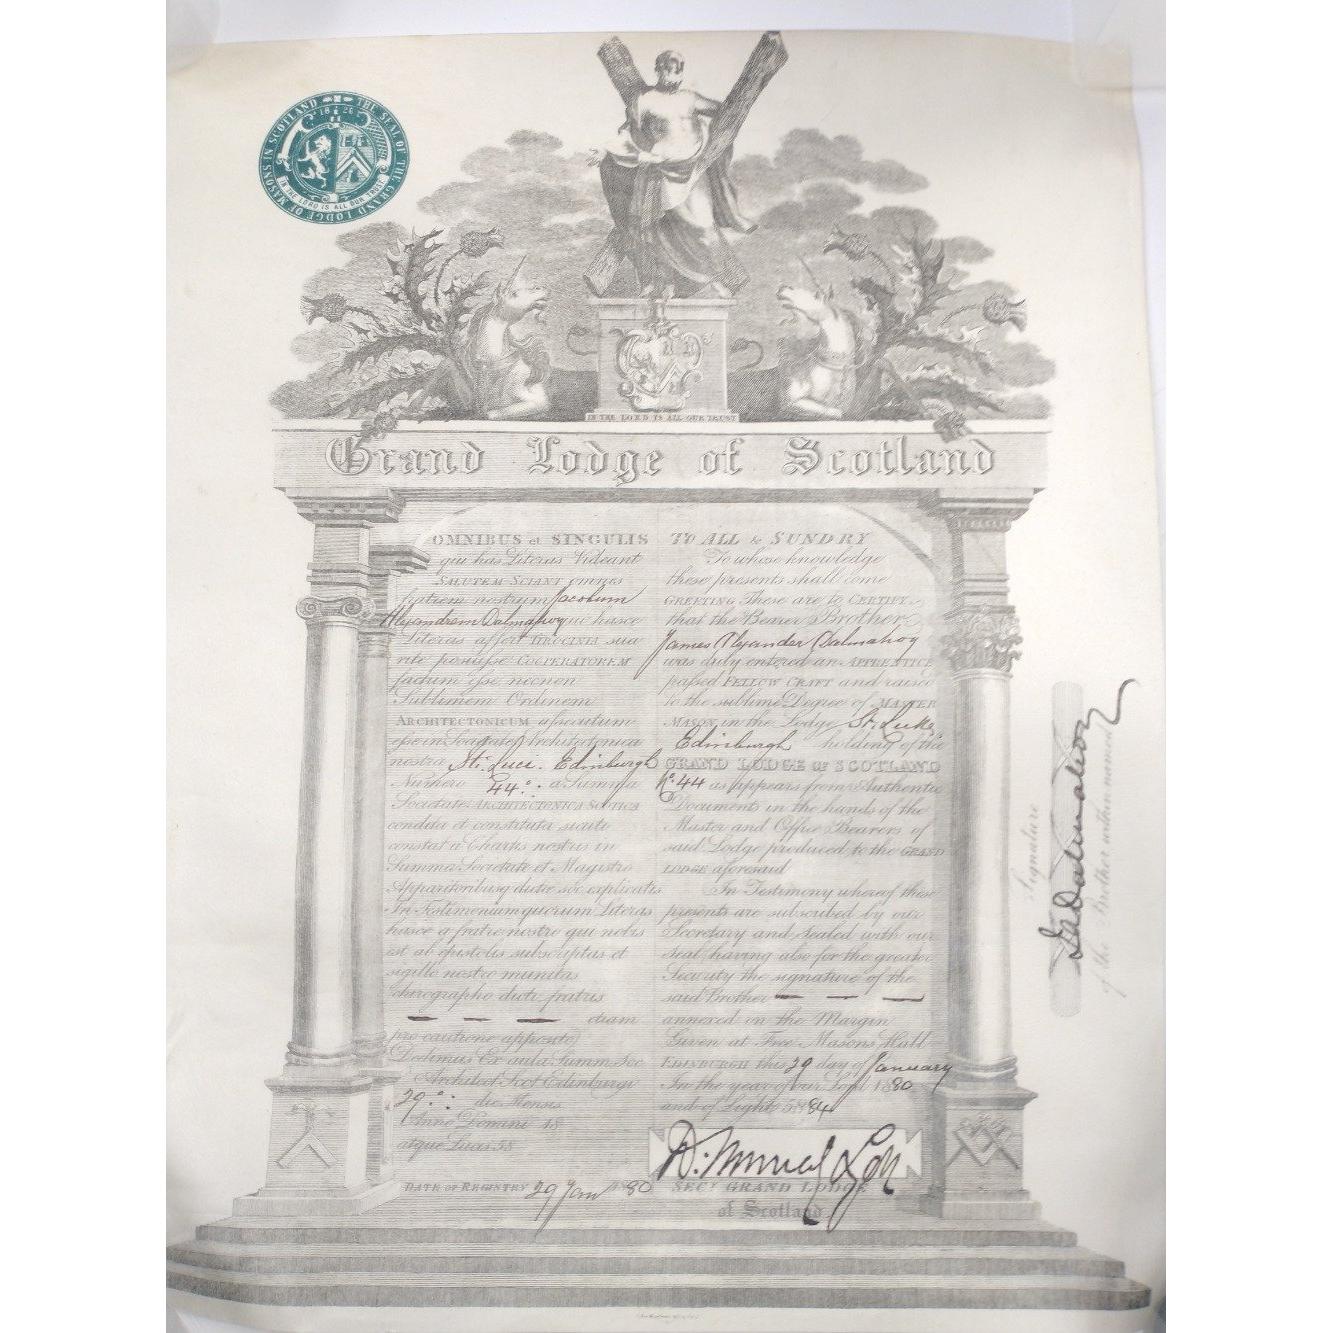 THE SEAL OF THE GRAND LODGE OF MASONS IN SCOTLAND
IN THE LORD IS ALL OUR TRUST
IN THE LORD IS ALL OUR TRUST
Grand Lodge of Scotland
OMNIBUS et SINGULIS
qui has Literas Videant
SALUTEM SCIANT omnes
fratrem nostrum Jacobum
Alexandrem Dalmahoy qui hasce
Literas affert TIROCINIA sua
rite posuisse COOPERATOREM
factum esse necnon
Sublimem Ordinem
ARCHITECTONICUM assecutum
esse in Societate Architectonica
nostra Sti. Luci. Edinburgh
Numero 44 a Summa
Societate ARCHITECTONICA SCOTICA
condita et constituta sicuti
constat a Chartis nostris in
Summa Societate et Magistro
Apparitoribusq dictae soc explicatis
In Testimonium quorum Literas
hasce a fratre nostro qui nobis
est ab epistolis subscriptas et
sigillo nostro munitas
chirographo dicti fratris
— — — etiam
pro cautione apposito
Dedimus Ex aula Summ Soc
Architect Scot Edinburgi
29 die Mensis
Anno Domini 18
atque Lucis 58
DATE OF REGISTRY 29 Jan 1880
TO ALL & SUNDRY
To whose knowledge
these presents shall come
GREETING These are to CERTIFY
that the Bearer Brother
James Alexander Dalmahoy
was duly entered an APPRENTICE
passed FELLOW CRAFT and raised
to the sublime Degree of MASTER
MASON in the Lodge St. Luke
Edinburgh holding of the
GRAND LODGE OF SCOTLAND
No. 44 as appears from Authentic
Documents in the hands of the
Master and Office Bearers of
said Lodge produced to the GRAND
LODGE aforesaid
In Testimony whereof these
presents are subscribed by our
Secretary and Sealed with our
Seal, having also for the greater
Security the signature of the
said Brother — — —
annexed on the Margin
Given at Free Masons Hall
EDINBURGH this 29 day of January
In the year of our Lord 1880
and of Light 5884
D. Murray Lyon
SECY GRAND LODGE
of Scotland
Signature
Jas Dalmahoy
of the Brother within named